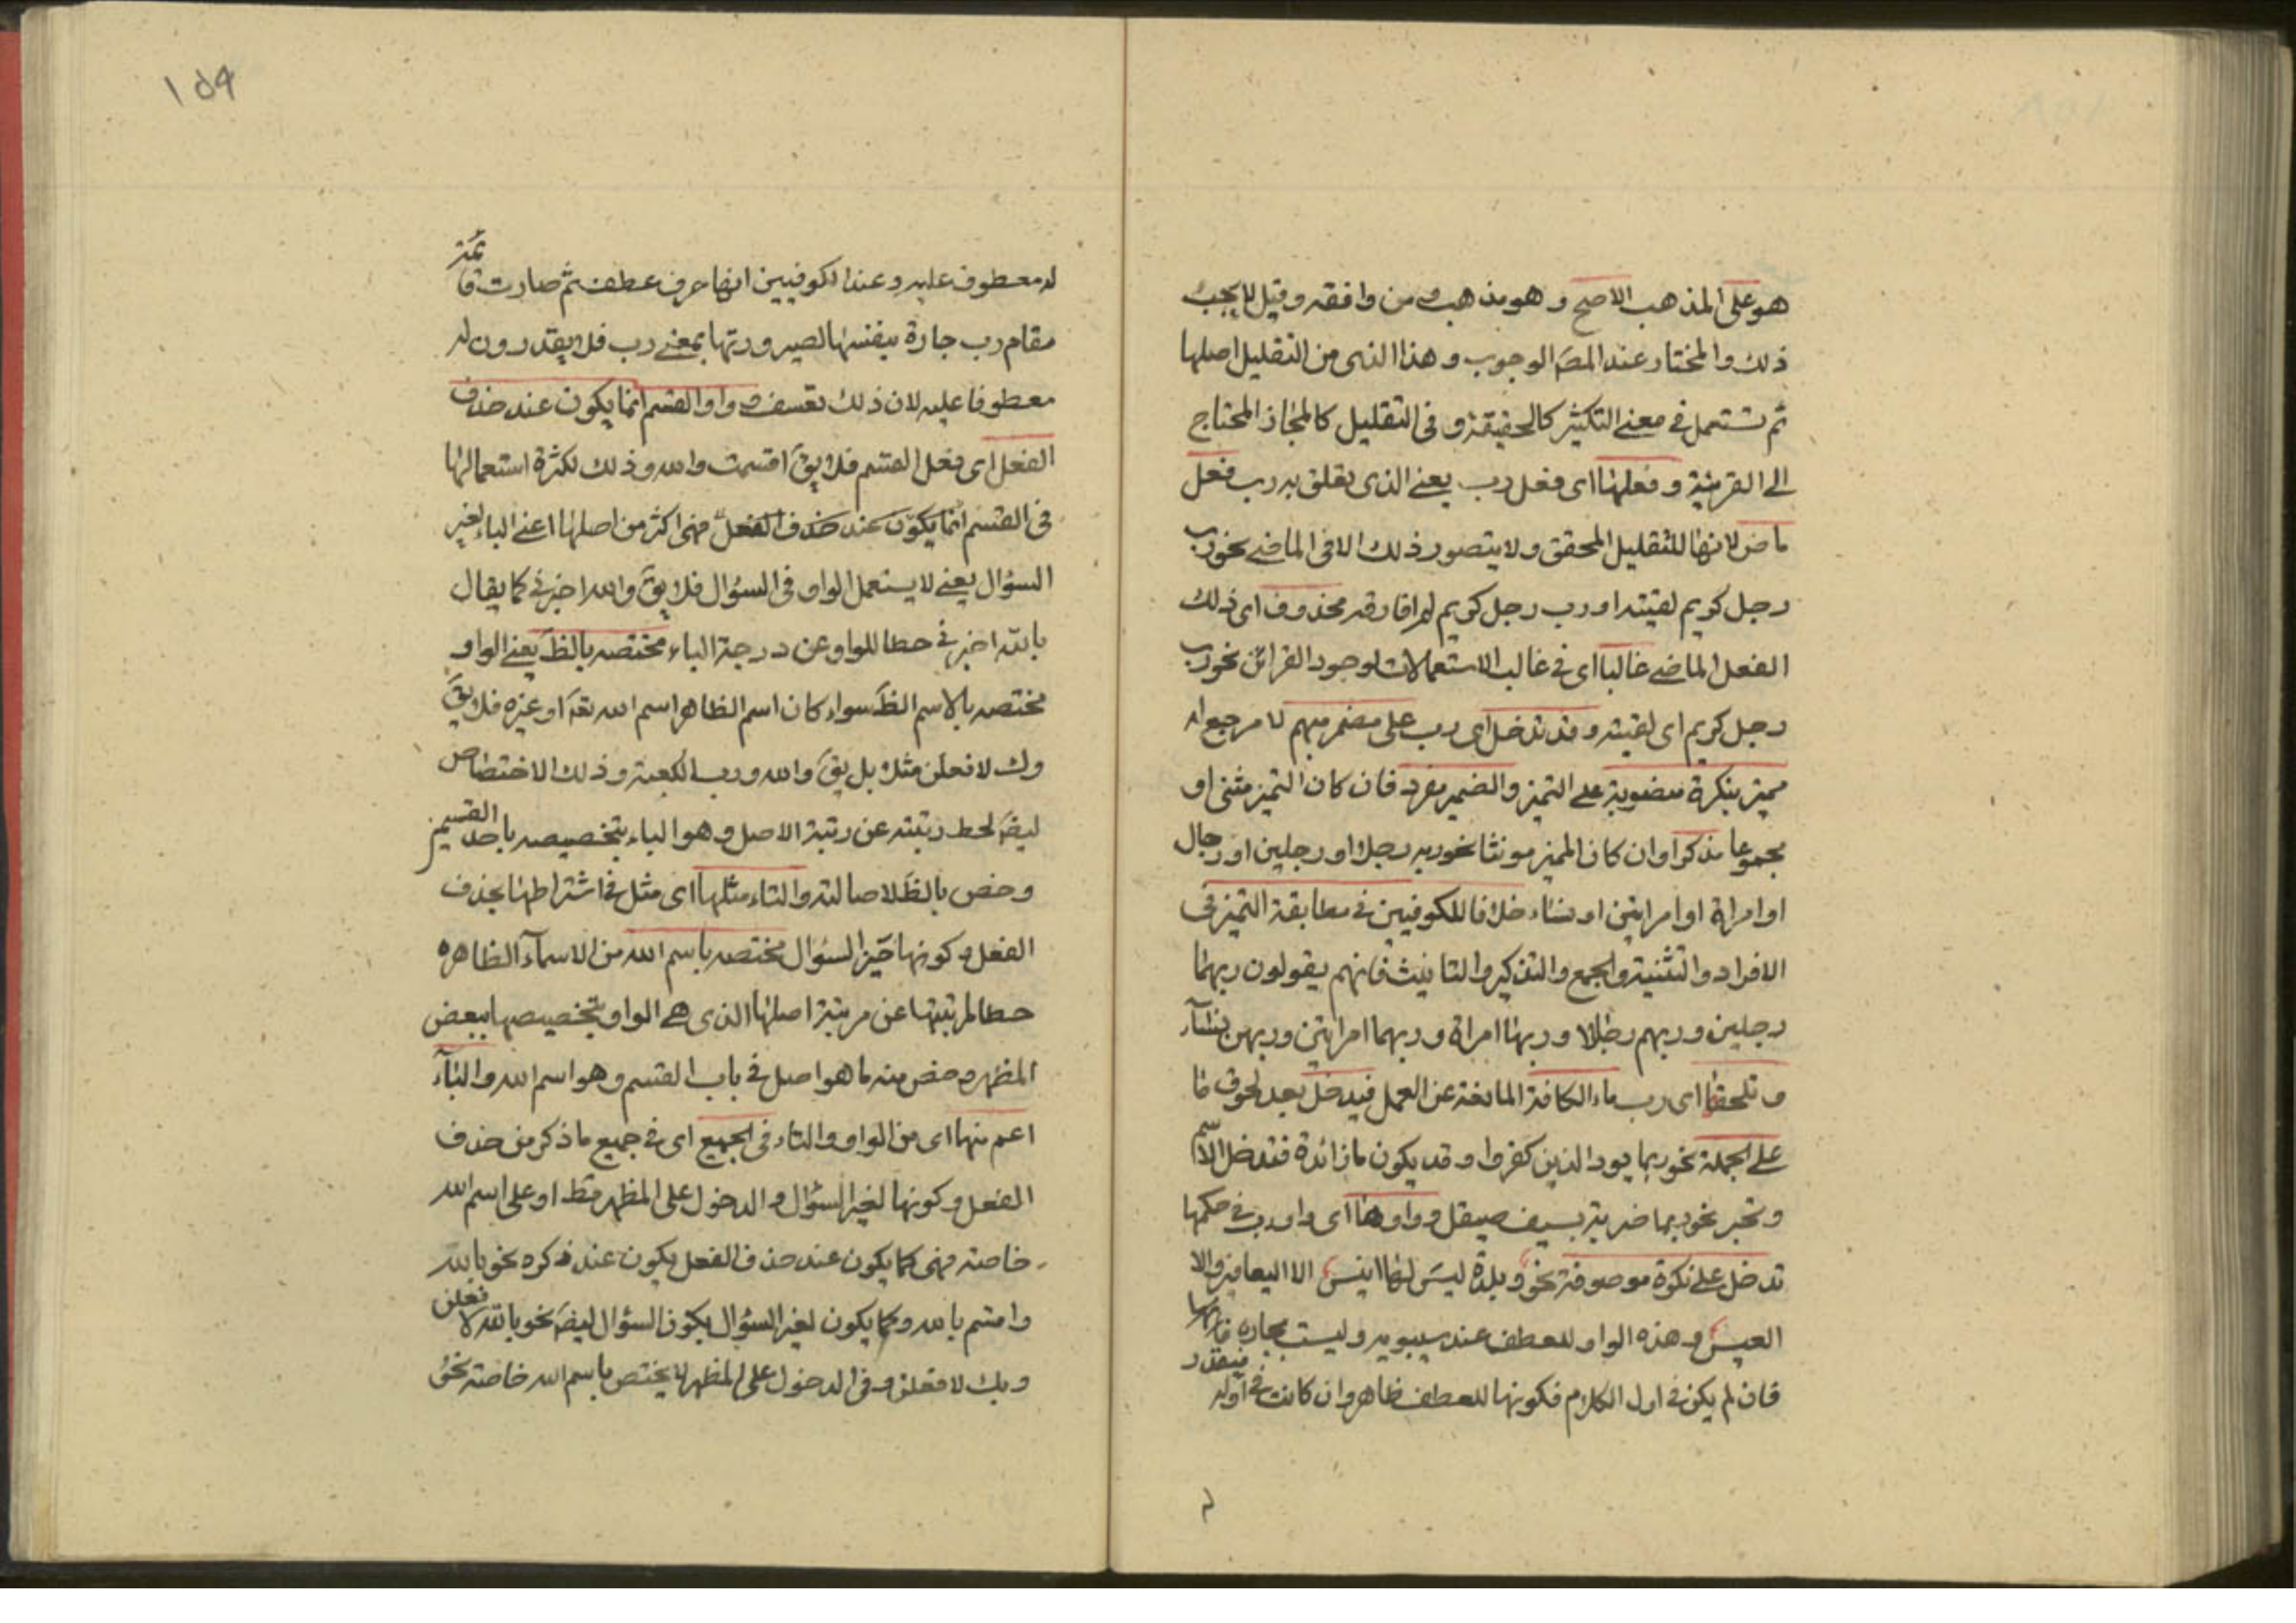 هو على المذهب الاصح و هو مذهب س ومن وافقه وقيل لا يجب
ذلك والمختار عند المصَ الوجوب وهذا الذى من التقليل اصلها
ثم تستعمل فى معنى التكثير كالحقيقة و فى التقليل كالمجاز المحتاج
الى القرينة و فعلها اى فعل رب يعنى الذى تعلق به رب فعل
ماض لانها للتقليل المحقق ولا يتصور ذلك الا فى الماضى نحو رب
رجل كريم لقيته او رب رجل كريم لم افارقه محذوف اى ذلك
الفعل الماضى غالبا اى فى غالب الاستعمالات لوجود القرائن نحو رب
رجل كريم اى لقيته و قد تدخل اى رب على مضمر مبهم لا مرجع له
مميز بنكرة منصوبة على التميز والضمير مفرد فان كان التميز مثنى او
مجموعا مذكر اوان كان المميز مونثا نحو ربه رجلا او رجلين او رجال
او امراة او امراتين او نساء خلافا للكوفيين فى مطابقة التميز فى
الافراد والتثنية والجمع والتذكير والتانيث فانهم يقولون ربهما
رجلين وربهم رجالا وربها امراة وربهما امراتين وربهن نسآء
و تلحقها اى رب ماء الكافة المانعة عن العمل فيدخل بعد لحوق ما
على الجملة نحو ربما يود الذين كفروا وقد يكون ما زائدة فتدخل الاسم
وتجر نحو ربما ضربة بسيف صيقل و واوها اى واو رب فى حكمها
تدخل على نكرة موصوفة نحو وبلدة ليسَ لها انيس الا اليعافير والا
العيس و هذه الواو للعطف عند سيبويه وليست بجاره
فان لم يكن فى اول الكلام فكونها للعطف ظاهر وان كانت فى اوله فيقدر
له معطوف عليه وعند الكوفيين انها حرف عطف ثم صارت قائمة
مقام رب جارة بنفسها لصيرورتها بمعنى رب فلا يقدرون له
معطوفا عليه لان ذلك تعسف و واو القسم انما يكون عند حذف
الفعل اى فعل القسم فلا يقَ اقسمت والله وذلك لكثرة استعمالها
فى القسم انما يكون عند حذف الفعل فهى اكثر من اصلها اعنى الباء لغير
السؤال يعنى لا يستعمل الواو فى السؤال فلا يقَ والله اخبرنى كما يقال
بالله اخبرنى حطا للواو عن درجة الباء مختصه بالظَ يعنى الواو
مختصه بالاسم الظَ سواء كان اسم الظاهر اسم الله تعَ او غيره فلا يقَ
وك لافعلن مثلا بل يقَ والله ورب الكعبة وذلك الاختصاص
ليضَ لحط رتبته عن رتبة الاصل وهو الباء بتخصيصه باحد القسمين
وخص بالظَ لاصالته والتاء مثلها اى مثل فى اشتراطها بحذف
الفعل وكونها السؤال مختصه باسم الله من الاسمآء الظاهره
حطا لمرتبتها عن مرتبة اصلها الذى هى الواو بتخصيصها ببعض
المظهر وخص منه ما هو اصل فى باب القسم وهو اسم الله والبآء
اعم منها اى من الواو والتاء فى الجميع اى فى جميع ما ذكر من حذف
الفعل وكونها لغير السؤال والدخول على المظهر فقط او على اسم الله
خاصة فهى كما يكون عند حذف الفعل يكون عند ذكره نحو بالله
واقسم بالله وكما يكون لغير السؤال يكون السؤال ليضَ نحو بالله لافعلن
وبك لافعلن وفى الدخول على المظهر لا يختص باسم الله خاصة نحو